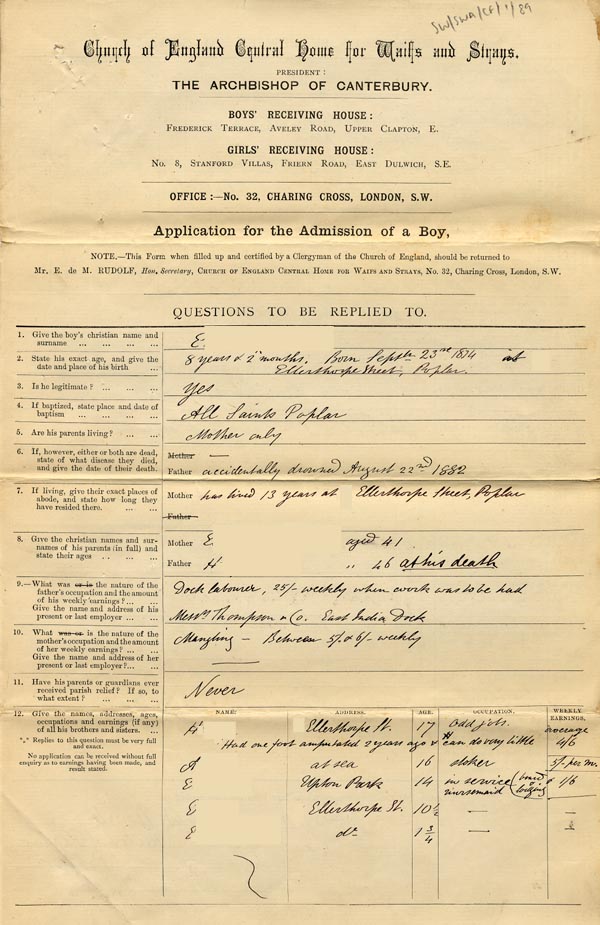 SW/SWA/CF/1/89
Church of England Central Home for Waifs and Strays.
PRESIDENT:
THE ARCHBISHOP OF CANTERBURY.
BOYS' RECEIVING HOUSE:
FREDERICK TERRACE, AVELEY ROAD, UPPER CLAPTON, E.
GIRLS' RECEIVING HOUSE:
No. 8, STANFORD VILLAS, FRIERN ROAD, EAST DULWICH, S.E.
OFFICE:—No. 32, CHARING CROSS, LONDON, S.W.
Application for the Admission of a Boy,
NOTE.—This Form when filled up and certified by a Clergyman of the Church of England, should be returned to
Mr. E. de M. RUDOLF, Hon. Secretary, CHURCH OF ENGLAND CENTRAL HOME FOR WAIFS AND STRAYS, No. 32, Charing Cross, London, S.W.
QUESTIONS TO BE REPLIED TO.
1. Give the boy's christian name and
surname ... ... ... ...
E.
2. State his exact age, and give the
date and place of his birth ...
8 years & 2 months. Born Septbr 23rd 1874 at
Ellerthorpe Street, Poplar.
3. Is he legitimate? ... ... ...
Yes
4. If baptized, state place and date of
baptism ... ... ... ...
All Saints Poplar
5. Are his parents living? ... ...
Mother only
6. If, however, either or both are dead,
state of what disease they died,
and give the date of their death.
Mother —
Father accidentally drowned August 22nd 1882
7. If living, give their exact places of
abode, and state how long they
have resided there. ... ...
Mother has lived 13 years at Ellerthorpe Street, Poplar
Father
8. Give the christian names and sur-
names of his parents (in full) and
state their ages ... ... ...
Mother E aged 41
Father H " 46 at his death
9.—What was or is the nature of the
father's occupation and the amount
of his weekly earnings? ... ...
Give the name and address of his
present or last employer ... ...
Dock labourer, 25/- weekly when work was to be had
Messrs Thompson & Co. East India Dock
10. What was or is the nature of the
mother's occupation and the amount
of her weekly earnings? ... ...
Give the name and address of her
present or last employer? ... ...
Mangling — Between 5/- & 6/- weekly
—
11. Have his parents or guardians ever
received parish relief? If so, to
what extent? ... ... ...
Never
12. Give the names, addresses, ages,
occupations and earnings (if any)
of all his brothers and sisters. ...
*** Replies to this question must be very full
and exact.
No application can be received without full
enquiry as to earnings having been made, and
result stated.
NAME: ADDRESS. AGE. OCCUPATION. WEEKLY EARNINGS,
average
H Ellerthorpe St. 17 odd jobs.
Had one foot amputated 2 years ago & can do very little 4/6
A at sea 16 stoker 5/- per m.
E Upton Park 14 in service nursemaid (board & lodging) & 1/6
E Ellerthorpe St. 10½ — —
E do 1¾ — —